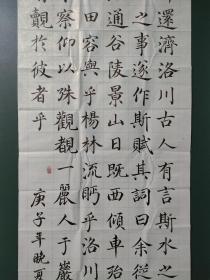 還濟洛川古人有言斯水之
之事遂作斯賦其詞曰余從
通谷陵景山日既西傾車殆
田容與乎楊林流眄乎洛川
察仰以殊觀覩一麗人于巖
覿於彼者乎
庚子年晚夏